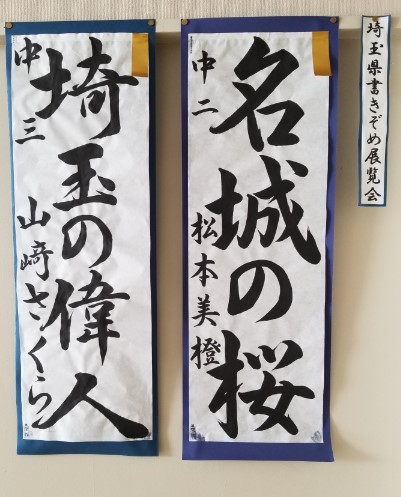 埼玉県書きぞめ展覧会
名城の桜
中二 松本美橙
埼玉の偉人
中三 山﨑さくら